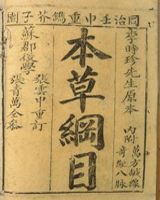 同治壬申重鐫芥子園
李時珍先生原本
內附萬方鍼線
奇經八脉
本草綱目
張雲中重訂
蘇郡後學
張青萬仝參